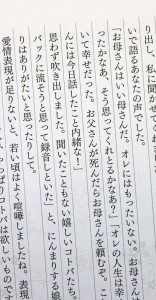 り出し、私に聞かせてく
いで語るあなたの声でした。
「お母さんはいい母さんだ。オレにはもったいない。お母さん
ったかなあ、そう思ってくれとるかなあ？」「オレの人生は
いて幸せだった。お父さんが死んだらお母さんを頼むぞ。こ
んには今日話したこと内緒な！」
思わず吹き出しました。聞いたこともない嬉しいコトバたち。
バックに流そうと思って録音しといた」と、にんまりする娘
りはありがたいと思ったりして。
愛情表現が足りないと、若い頃はよく喧嘩しましたね。表現
やっぱりコトバは欲しいものです